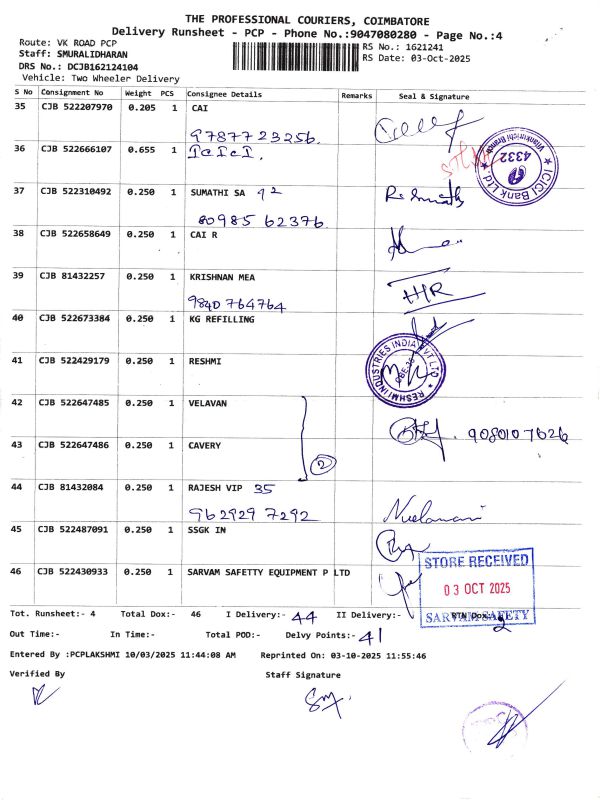 THE PROFESSIONAL COURIERS, COIMBATORE
Delivery Runsheet - PCP - Phone No.:9047080280 - Page No.:4
Route: VK ROAD PCP
Staff: SMURALIDHARAN
DRS No.: DCJB162124104
Vehicle: Two Wheeler Delivery
RS No.: 1621241
RS Date: 03-Oct-2025
S No Consignment No Weight PCS Consignee Details Remarks Seal & Signature
35 CJB 522207970 0.205 1 CAI
9787723256.
36 CJB 522666107 0.655 1 ICICI.
ICICI Bank Ltd. Vilankurichi Branch 4332
37 CJB 522310492 0.250 1 SUMATHI SA 92
80985 62376
38 CJB 522658649 0.250 1 CAI R
39 CJB 81432257 0.250 1 KRISHNAN MEA
9840764764
HR
40 CJB 522673384 0.250 1 KG REFILLING
41 CJB 522429179 0.250 1 RESHMI
RESHMI INDUSTRIES INDIA PVT LTD
42 CJB 522647485 0.250 1 VELAVAN
9080107626
43 CJB 522647486 0.250 1 CAVERY
2
44 CJB 81432084 0.250 1 RAJESH VIP 35
962929 7292
Neelamani
45 CJB 522487091 0.250 1 SSGK IN
46 CJB 522430933 0.250 1 SARVAM SAFETTY EQUIPMENT P LTD
STORE RECEIVED
03 OCT 2025
SARVAM SAFETY
Tot. Runsheet:- 4 Total Dox:- 46 I Delivery:- 44 II Delivery:- RTN Dox:- 2
Out Time:- In Time:- Total POD:- Delvy Points:- 41
Entered By :PCPLAKSHMI 10/03/2025 11:44:08 AM Reprinted On: 03-10-2025 11:55:46
Verified By Staff Signature